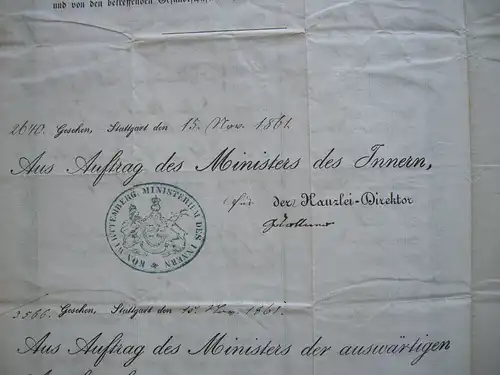 und von den betreffenden
2640. Gesehen, Stuttgart den 15. Nov. 1861.
Aus Auftrag des Ministers des Innern,
für der Kanzlei-Direktor
KÖN. WÜRTTEMBERG. MINISTERIUM DES INNERN
3566. Gesehen, Stuttgart den 15. Nov. 1861.
Aus Auftrag des Ministers der auswärtigen